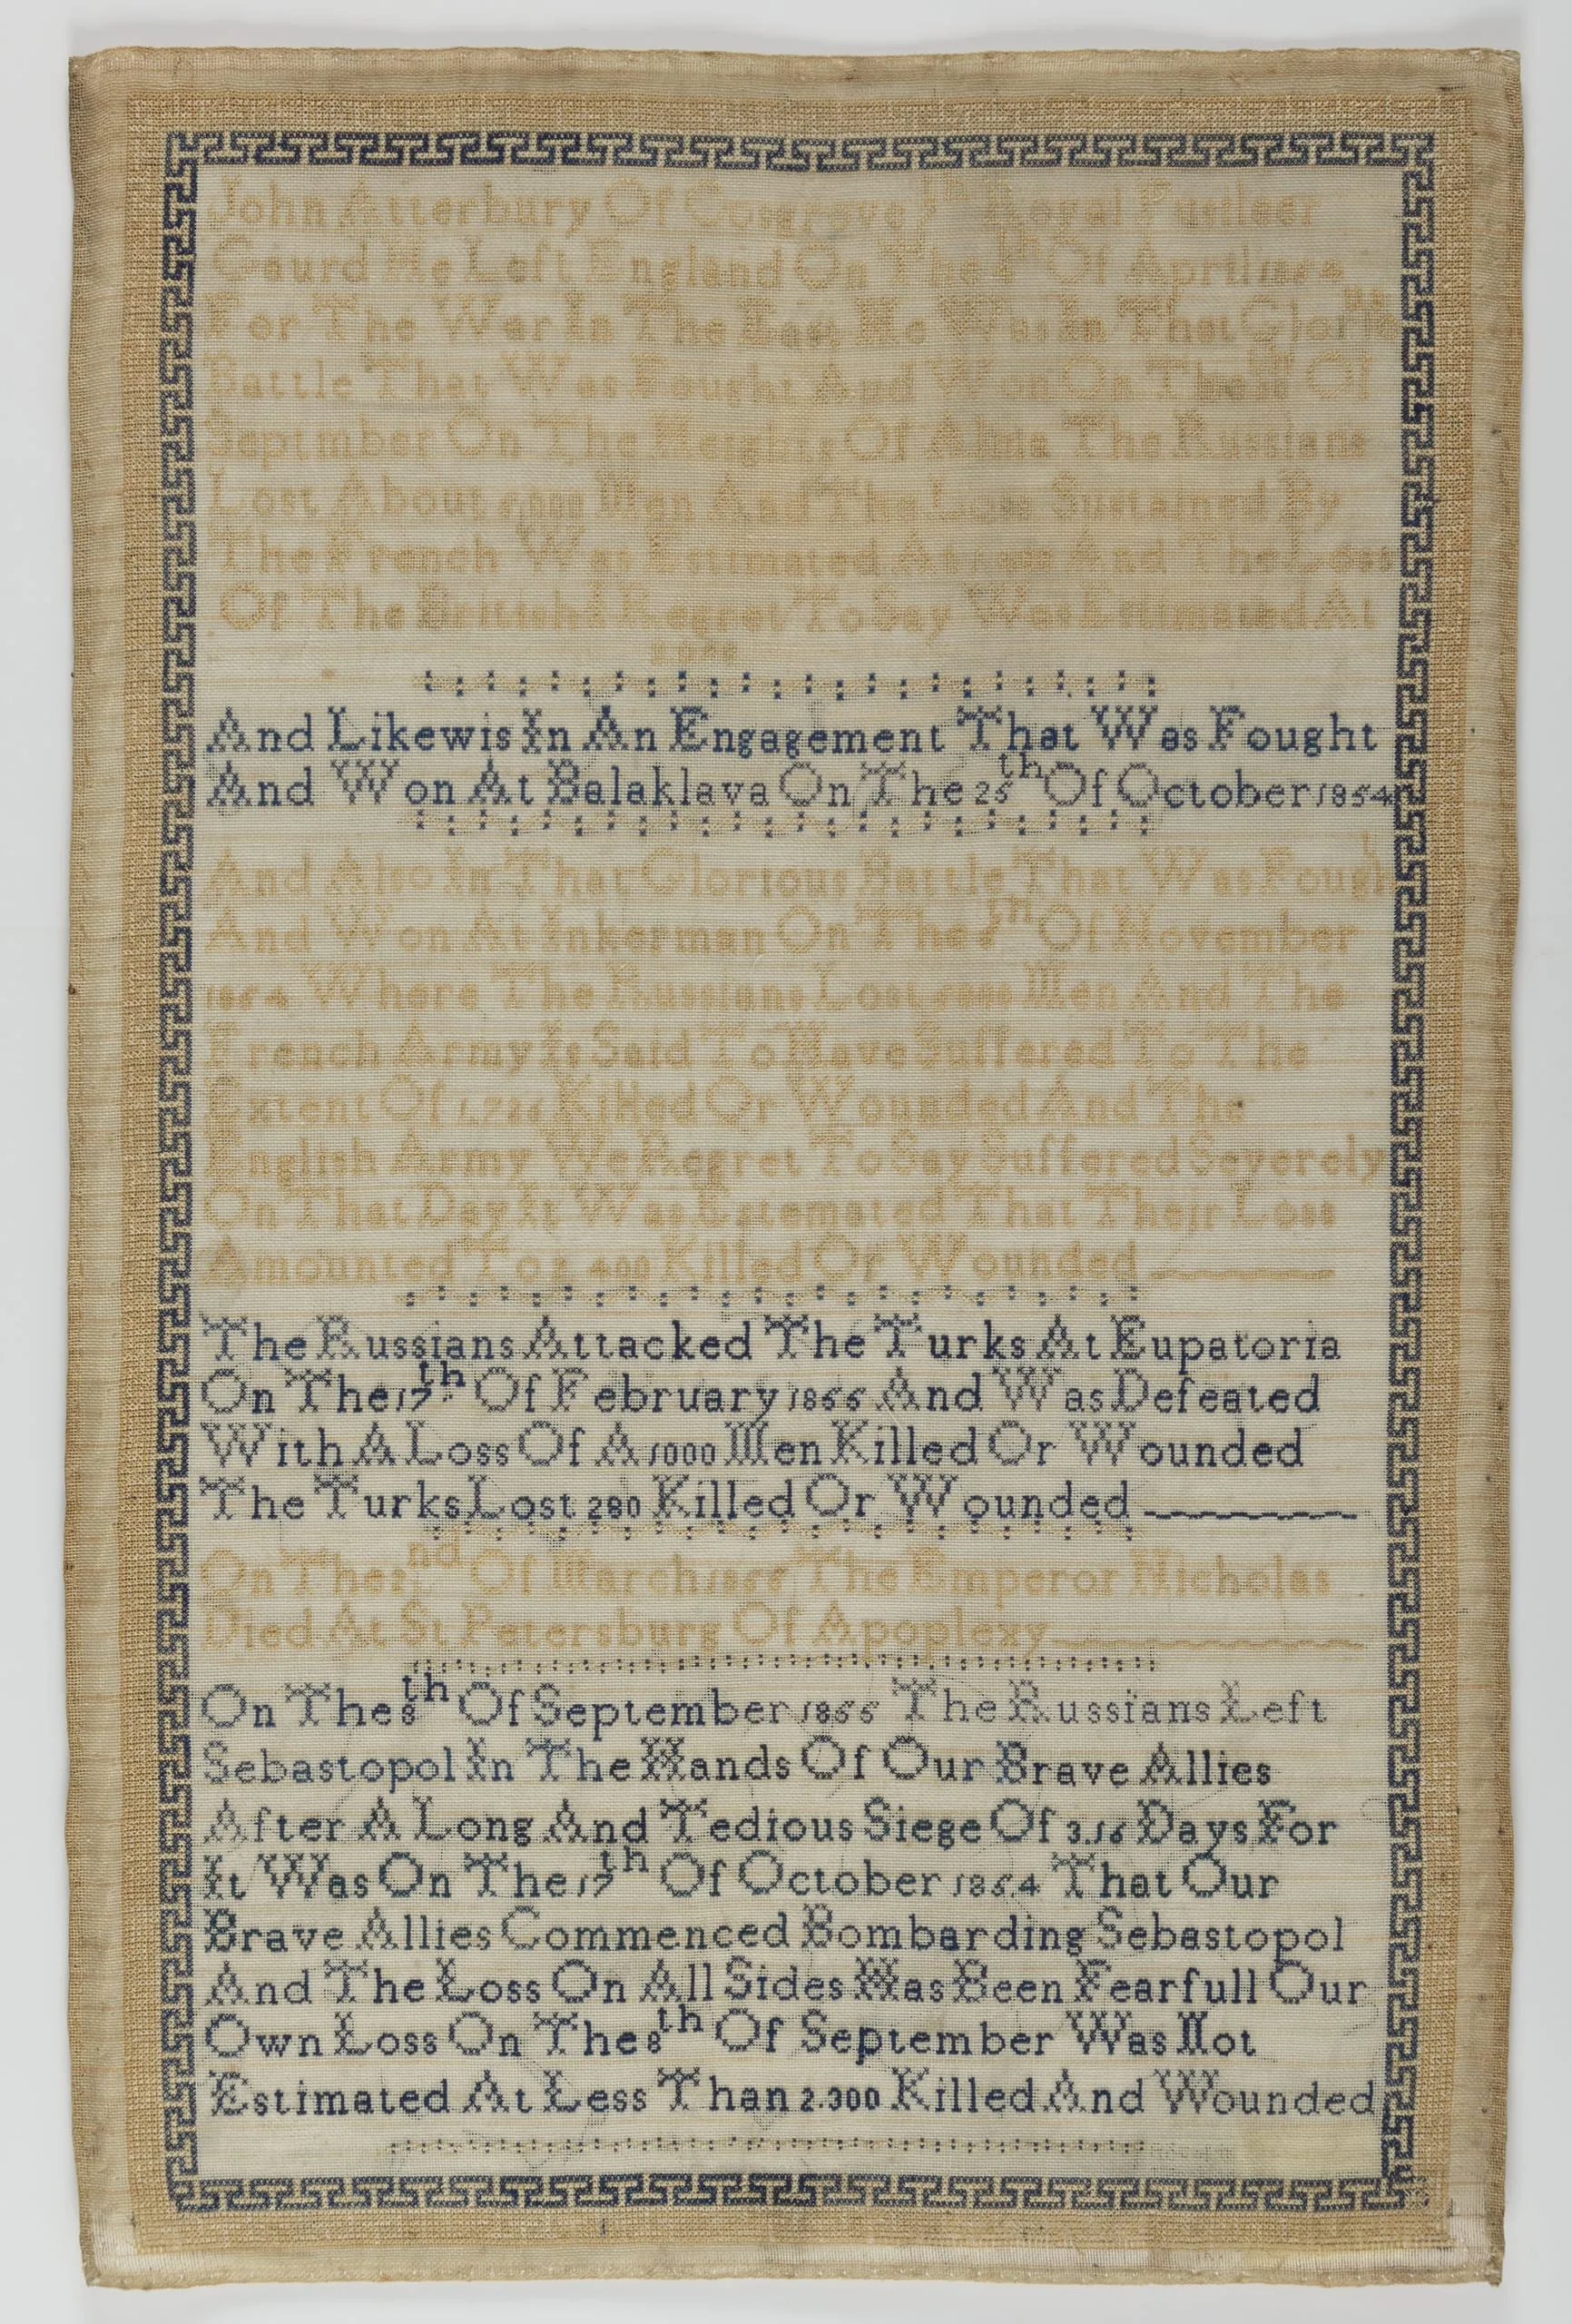 John Atterbury Of Cosgrove 7th Royal Fusileer
Gaurd He Left England On The Of Aprill 1854
For The War In The East He Was In That Glorius
Battle That Was Fought And Won On The Of
Septmber On The Heights Of Alma The Russians
Lost About Men And The Loss Sustained By
The French Was Estimated At And The Loss
Of The British I Regret To Say Was Estimated At
And Likewis In An Engagement That Was Fought
And Won At Balaklava On The 25th Of October 1854
And Also In That Glorious Battle That Was Fought
And Won At Inkerman On The 5th Of November
1854 Where The Russians Lost Men And The
French Army Is Said To Have Suffered To The
Extent Of Killed Or Wounded And The
English Army We Regret To Say Suffered Severely
On That Day It Was Estemated That Their Loss
Amounted To 2.400 Killed Or Wounded
The Russians Attacked The Turks At Eupatoria
On The 17th Of February 1855 And Was Defeated
With A Loss Of A 1000 Men Killed Or Wounded
The Turks Lost 280 Killed Or Wounded
On The 2nd Of March 1855 The Emperor Nicholas
Died At St Petersburg Of Apoplexy
On The 8th Of September 1855 The Russians Left
Sebastopol In The Hands Of Our Brave Allies
After A Long And Tedious Siege Of 3.16 Days For
It Was On The 17th Of October 1854 That Our
Brave Allies Commenced Bombarding Sebastopol
And The Loss On All Sides Has Been Fearfull Our
Own Loss On The 8th Of September Was Not
Estimated At Less Than 2.300 Killed And Wounded